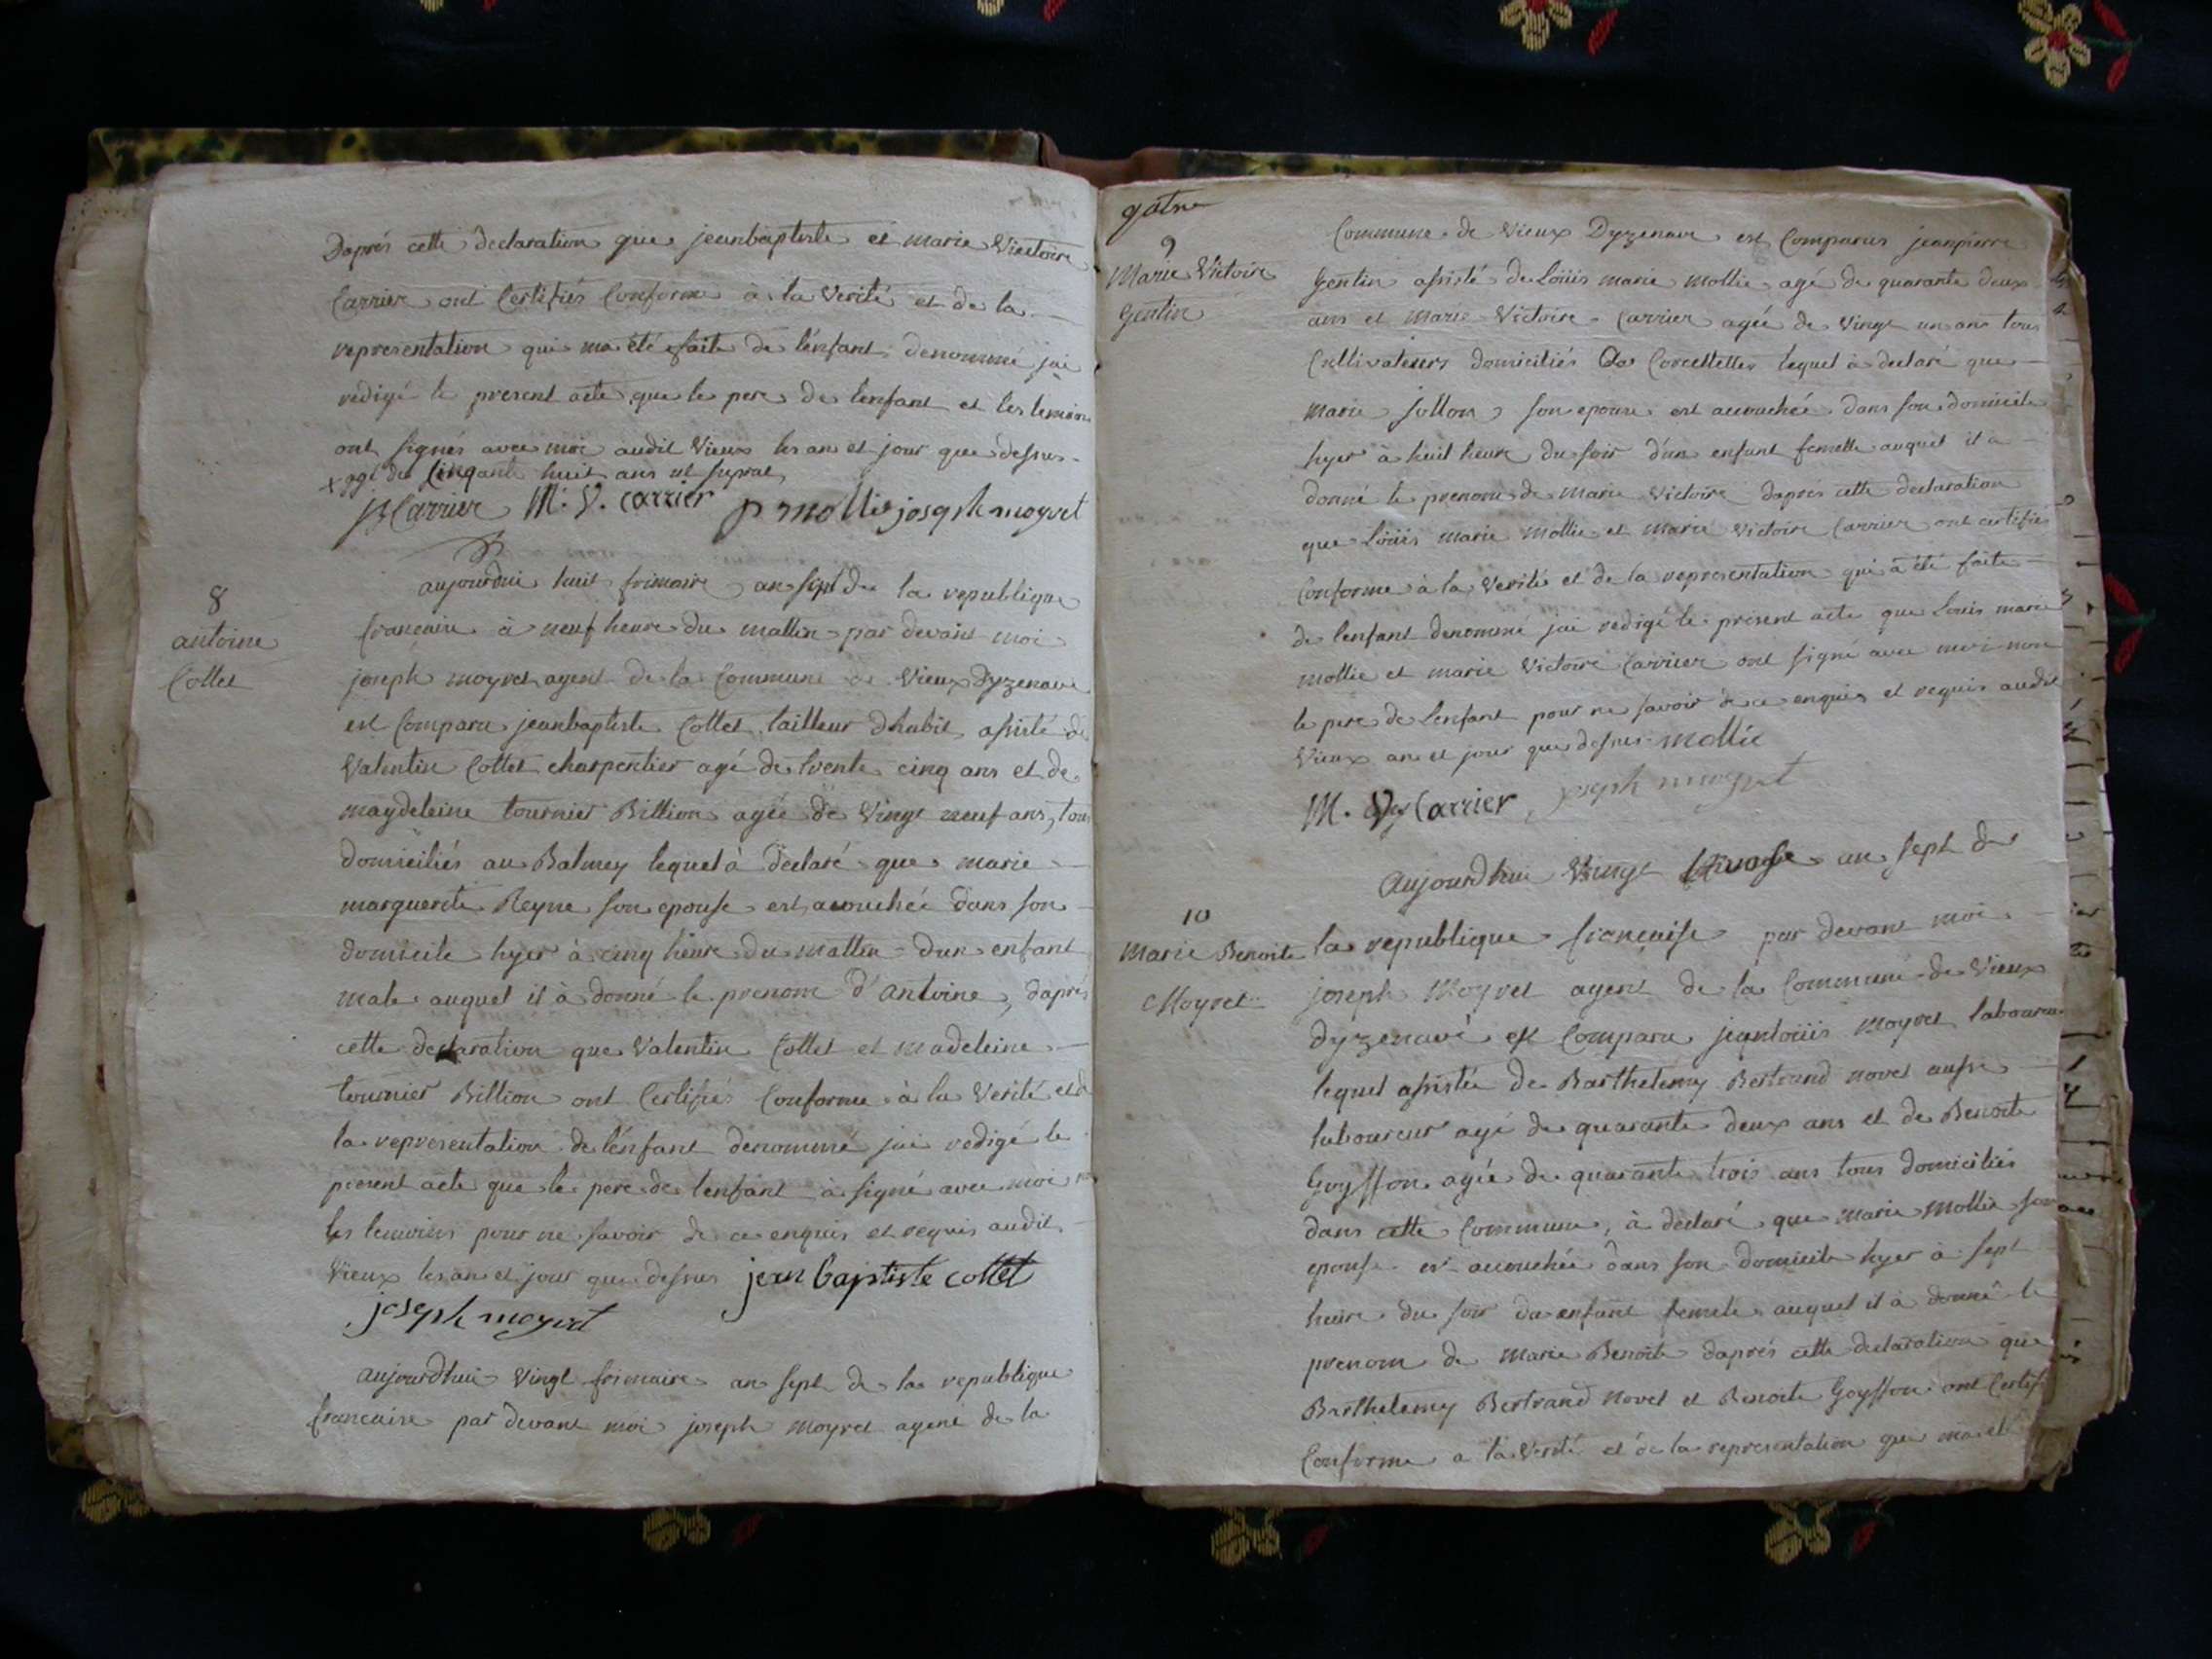 Daprés cette declaration que jeanbaptiste et marie Victoire
Carrier ont Certifiés Conforme à la Verité et de la
representation qui ma été faite de l'enfant denommé jai
redigé le present acte que le pere de lenfant et les temoins
ont signés avec moi audit Vieux les an et jour que dessus
x agé de Cinqante huit ans ut supra
JB Carrier M. V. carrier p mollie joseph moyret
8
antoine
Collet
aujourdui huit frimaire an sept de la republique
francaise à neuf heure du mattin par devant moi
joseph moyret agent de la Commune de Vieux Dyzenave
est Comparu jeanbaptiste Collet tailleur dhabit assisté de
Valentin Collet charpentier agé de trente cinq ans et de
magdeleine tournier Billion agée de Vingt neuf ans, tous
domiciliés au Balmey lequel à declaré que marie
marguerite Reyne son epouse est acouchée dans son
domicile hyer à cinq heure du mattin dun enfant
male auquel il à donné le prenom d'antoine, daprés
cette declaration que Valentin Collet et madeleine
tournier Billion ont Certifiés Conforme à la Verité et d
la representation de l'enfant denommé jai redigé le
present acte que le pere de lenfant à signé avec moi
les temoins pour ne savoir de ce enquis et requis audit
Vieux les an et jour que dessus jean baptiste collet
joseph moyret
aujourdhui Vingt frimaire an sept de la republique
francaise par devant moi joseph moyret agent de la
9
Marie Victoire
Gentin
Commune de Vieux Dyzenave est Comparus jeanpierre
Gentin assisté de Loüis marie mollie agé de quarante deux
ans et marie Victoire Carrier agée de Vingt un ans tous
Cultivateurs domiciliés a Corcellettes lequel à declaré que
marie jollon son epouse est acouchée dans son domicile
hyer à huit heure du soir d'un enfant femelle auquel il a
donné le prenom de marie Victoire daprés cette declaration
que Loüis marie mollie et marie Victoire Carrier ont certifié
Conforme à la Verité et de la representation qui à été faite
de lenfant denommé jai redigé le present acte que Louis marie
mollie et marie Victoire Carrier ont signé avec moi non
le pere de Lenfant pour ne savoir de ce enquis et requis audit
Vieux an et jour que dessus mollie
M. V Carrier joseph moyret
10
Marie Benoite
Moyret
Aujourdhui Vingt Nivose an sept de
la republique francaise par devant moi
joseph Moyret agent de la Commune de Vieux
dyzenave est Comparu jeanloüis moyret laboureur
lequel assistée de Barthelemy Bertrand novet aussi
laboureur agé de quarante deux ans et de Benoite
Goyffon agée de quarante trois ans tous domiciliés
dans cette Commune, à declaré que marie Mollie son
epouse est acouchée dans son domicile hyer à sept
heure du soir da enfant femele auquel il à donné le
prenom de marie Benoite daprés cette declaration que
Barthelemy Bertrand novet et Benoite Goyffon ont Certif
Conforme a la Verité et de la representation que ma et